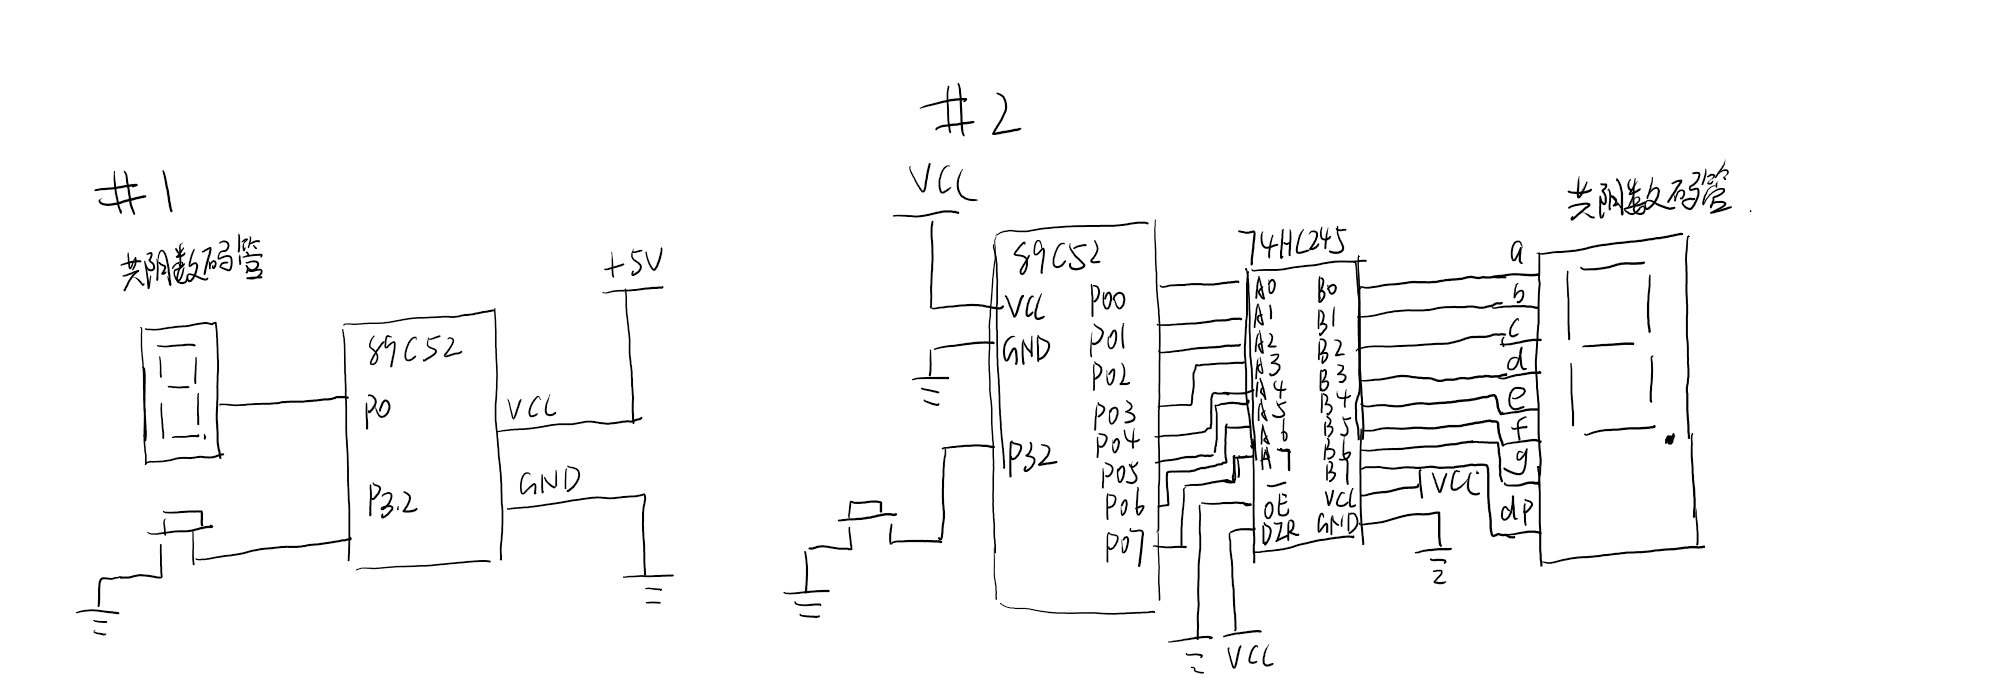 #1
共阴数码管
+5V
89C52
P0
VCC
GND
P3.2
#2
VCC
89C52
VCC
GND
P32
P00
P01
P02
P03
P04
P05
P06
P07
74HC245
A0
A1
A2
A3
A4
A5
A6
A7
OE
DZR
B0
B1
B2
B3
B4
B5
B6
B7
VCC
GND
VCC
VCC
共阴数码管.
a
b
c
d
e
f
g
dp